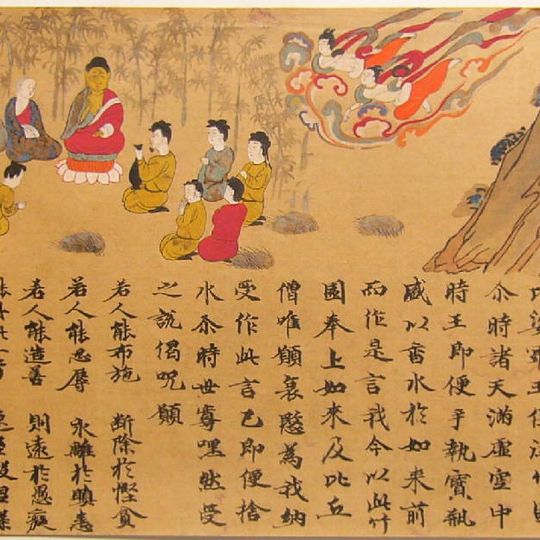 娑羅王往
尒時諸天滿虛空中
時王即便手執寶瓶
盛以香水於如來前
而作是言我今以此竹
園奉上如來及比丘
僧唯願哀愍為我納
受作此言已即便捨
水尒時世尊嘿然受
之說偈呪願
若人能布施 斷除於慳貪
若人能忍辱 永離於瞋恚
若人能造善 則遠於愚癡
速至般涅槃